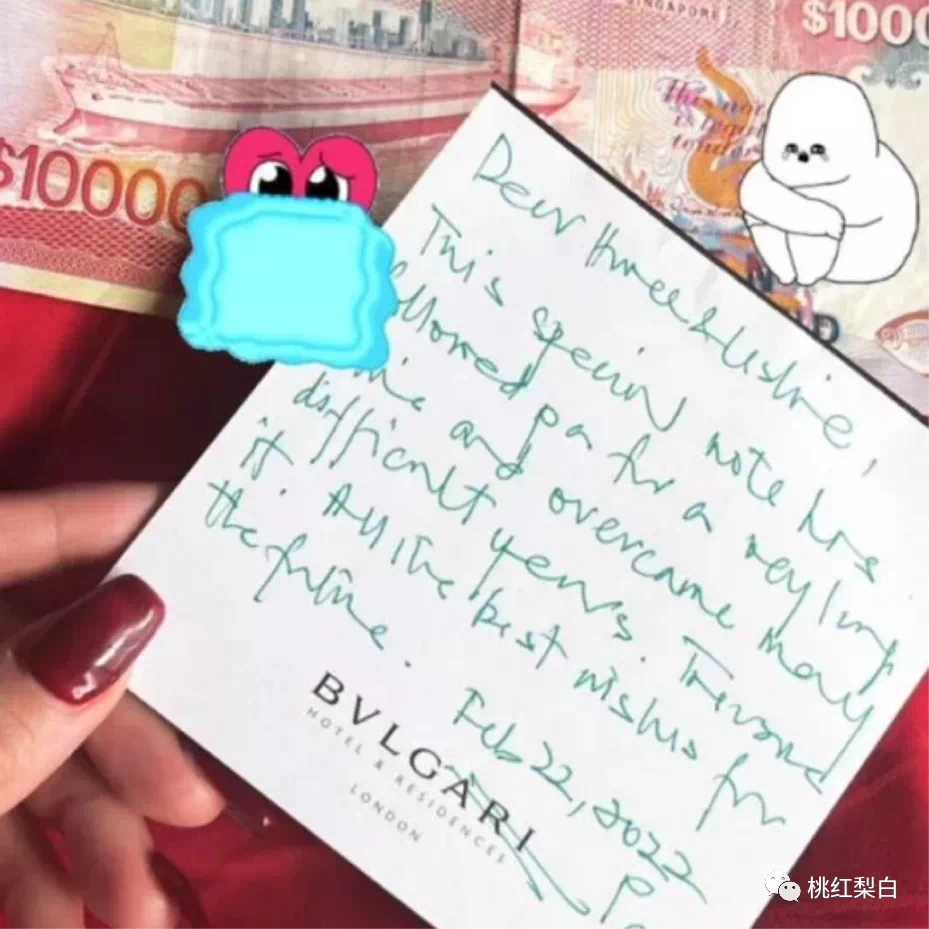 SINGAPORE
$1000
$10000
This note
is legal
tender
Dear
This special note has
followed for a very long
time and overcame many
difficult years.
it. All the best wishes for
the future.
Feb 22, 2022
BVLGARI
HOTEL & RESIDENCES
LONDON
桃红梨白